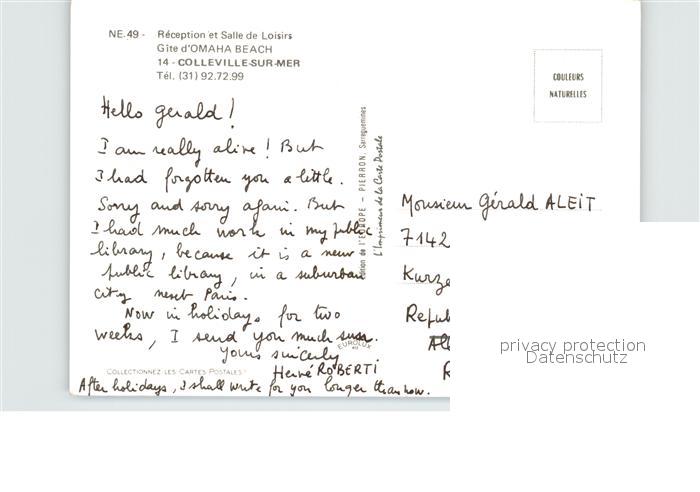 NE.49 - Réception et Salle de Loisirs
Gîte d'OMAHA BEACH
14 - COLLEVILLE-SUR-MER
Tél. (31) 92.72.99
COULEURS
NATURELLES
Hello Gerald!
I am really alive! But
I had forgotten you a little.
Sorry and sorry again. But
I had much work in my public
library, because it is a new
public library, in a suburban
city next Paris.
Now in holidays for two
weeks, I send you much sun.
Yours sincerly
Hervé ROBERTI
After holidays, I shall write for you longer than now.
COLLECTIONNEZ LES CARTES POSTALES
EUROLUX
Édition de l'EUROPE - PIERRON, Sarreguemines
L'Imprimeur de la Carte Postale
Monsieur Gérald ALEIT
7142
Kurze
Repub
R
privacy protection
Datenschutz